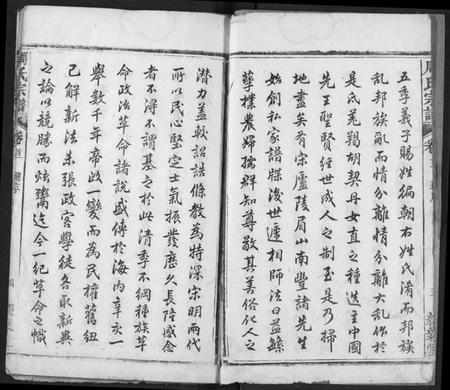 五季義子賜姓編朝右姓氏淆而邦族
亂邦族亂而情分離情分離大亂作於
是氐羌羯胡契丹女直之種迭主中國
先王聖賢經世成人之制至是乃掃
地盡矣有宋廬陵眉山南豐諸先生
始創私家譜牒後世遞相師法曰益
孽樸農婦孺群知尊敬其善俗化人之
潛力蓋較詔誥條教為特深宋明兩代
所以民心堅定士氣振發歷久長陸感念
者不得不謂基之於此清季不綱種族革
命政治革命諸說盛傳於海內辛亥一
舉數千年帝政一變而為民權舊紐
已解新法未張政客學徒各取新異
之論以競勝而炫迄今一紀革命之幟
周氏宗譜
卷首